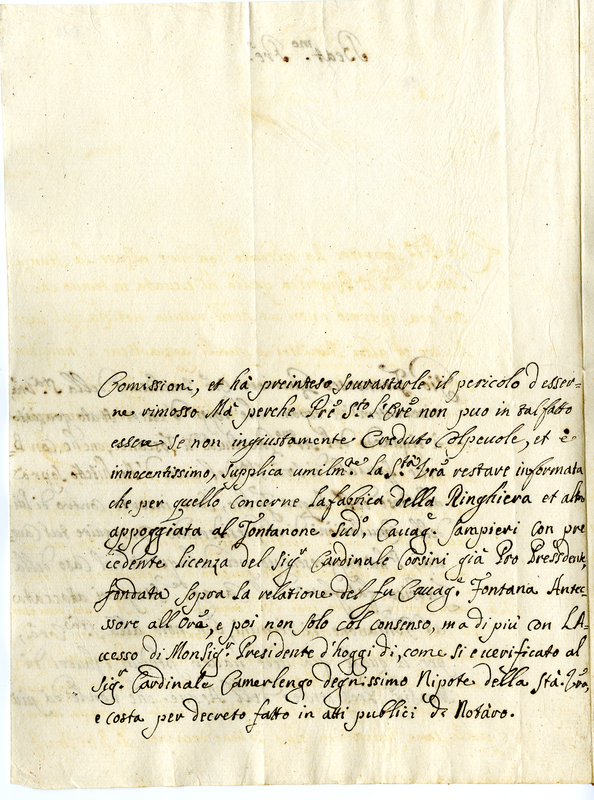 Comissioni, et hà preinteso sourastarle il pericolo d'esser-
ne rimosso Mà perche Pre. Sto. L'Ore. non puo in tal fatto
essere se non ingiustamente Creduto Colpeuole, et è
innocentissimo, supplica umilmte. la Stà. Vrà. restare informata
che per quello concerne la fabrica della Ringhiera et altro
appoggiata al Fontanone sudo. Cauagre. Sampieri con pre
cedente licenza del Sigr. Cardinale Corsini già Pro Presidente,
fondata sopra la relatione del fu Cauagre. Fontana Antec-
ssore all'Orã, e poi non solo col consenso, ma di più con L'Ac-
cesso di Monsigr. Presidente d'hoggi di, come si e uerificato al
Sigr. Cardinale Camerlengo degnissimo Nipote della Stà. Vrã,
e costa per decreto fatto in atti publici di Notaro.